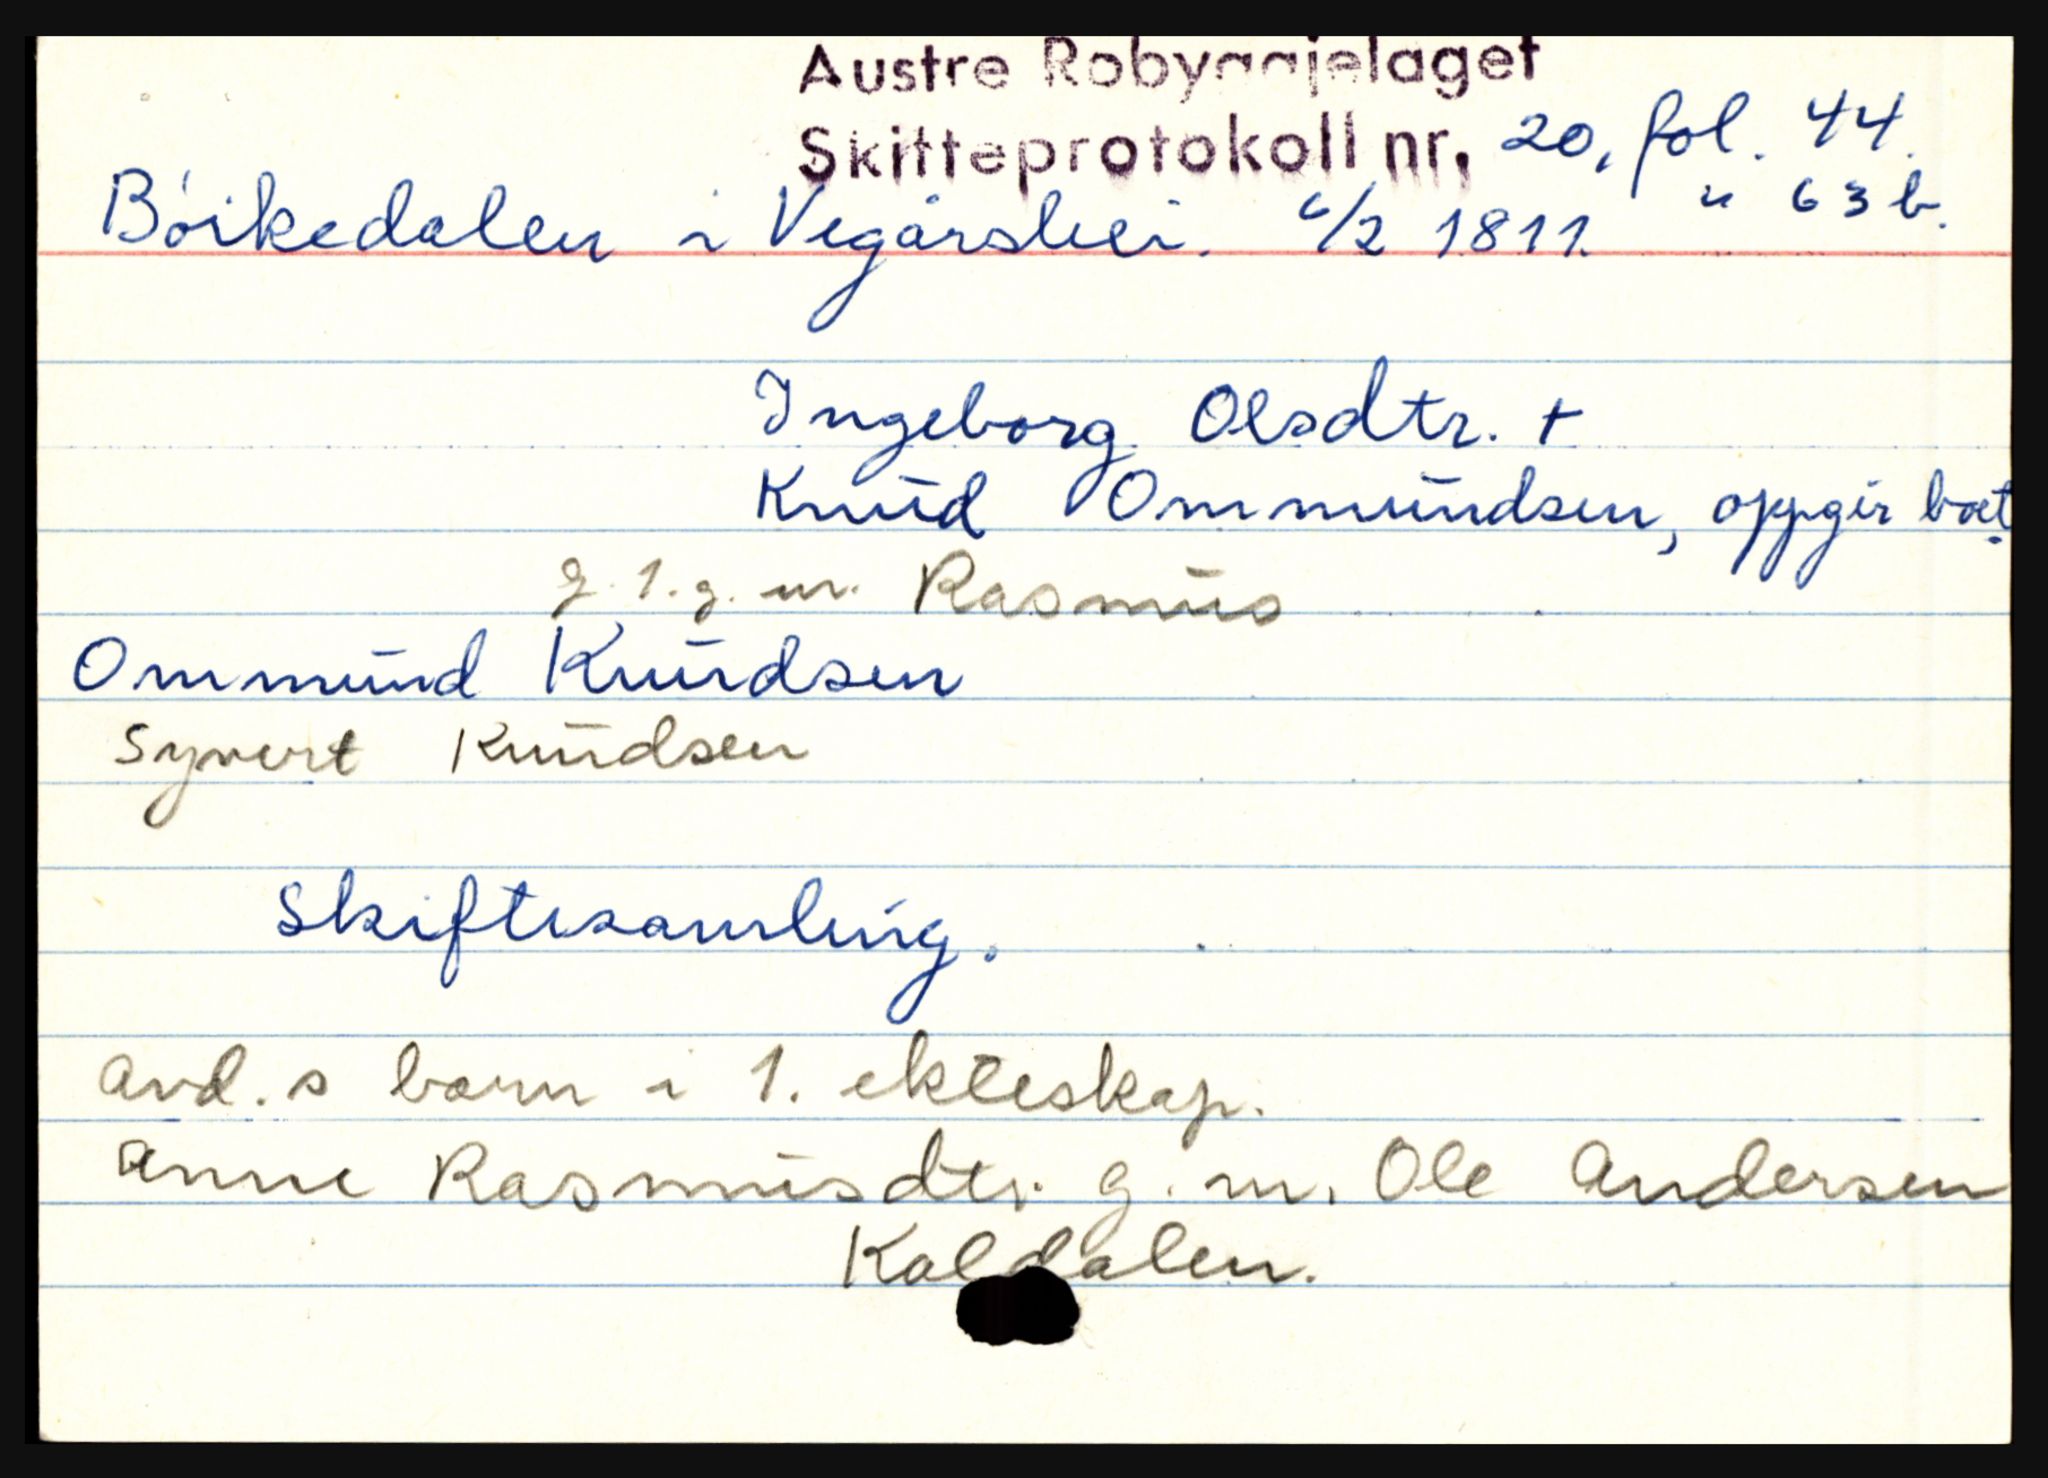 Austre Robyggjelaget
Skifteprotokoll nr, 20, fol. 44.
" 63 b.
Bóikedalen i Vegårshei. 6/2 1811.
Ingeborg Olsdtr. +
Knud Ommundsen, oppgir boet.
g. 1. g. m. Rasmus
Ommund Knudsen
Syvert Knudsen
Skiftesamling.
avd.s born i 1. ekteskap.
Anne Rasmusdtr. g. m. Ole Andersen
Kaldalen.